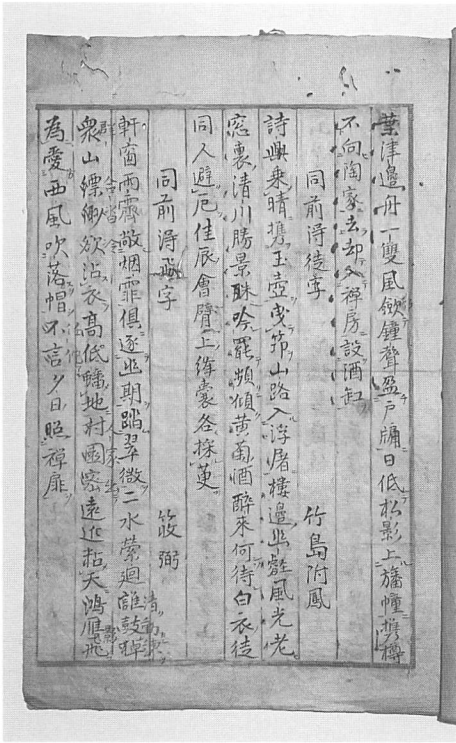 葉津邊舟一雙風皴鐘聲盈戸牖日低松影上旛幢携樽
不向陶家去却入禅房設酒缸
同前淂徒字　竹島附鳳
詩興乗晴携玉壺曳筇山路入浮屠樓邉幽壑風光老
窓裏清川勝景眛吟罷頻傾黄菊酒醉來何待白衣徒
同人避厄佳辰會臂上縫囊各採萸
同前淂飛字　筱弼
軒窗雨霽敞烟霏俱逐幽期踏翠微二水縈廻誰鼓枻
衆山縹緲欲沾衣髙低蟠地村園宻遠近粘天鴻雁飛
為愛西風吹落帽不言夕日照禅扉